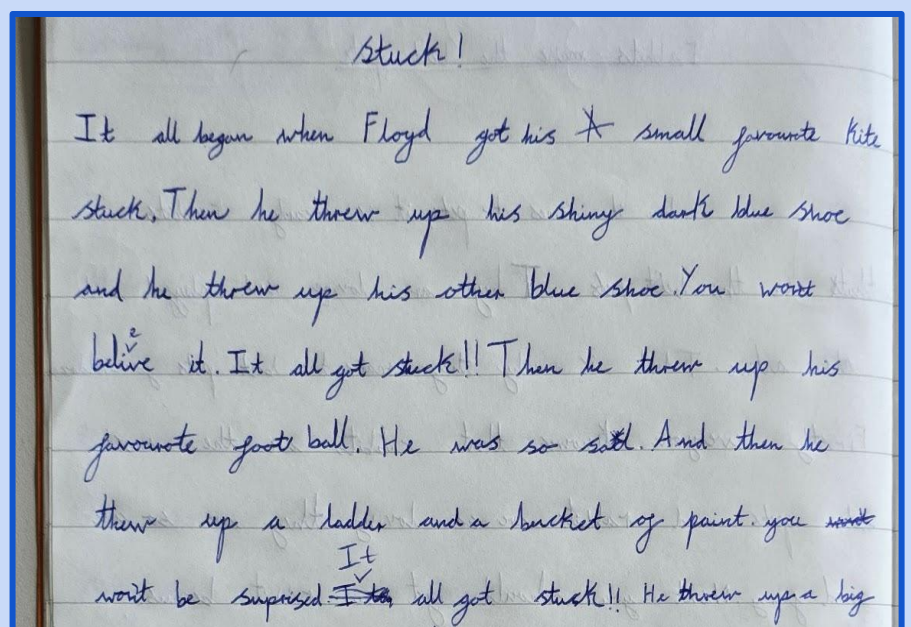 Stuck!
It all began when Floyd got his small favourote kite
stuck. Then he threw up his shiny dark blue shoe
and he threw up his other blue shoe. You wont
beleive it. It all got stuck!! Then he threw up his
favourote foot ball. He was so sad. And then he
thew up a ladder and a bucket of paint. you
won't be suprised It all got stuck!! He threw up a big